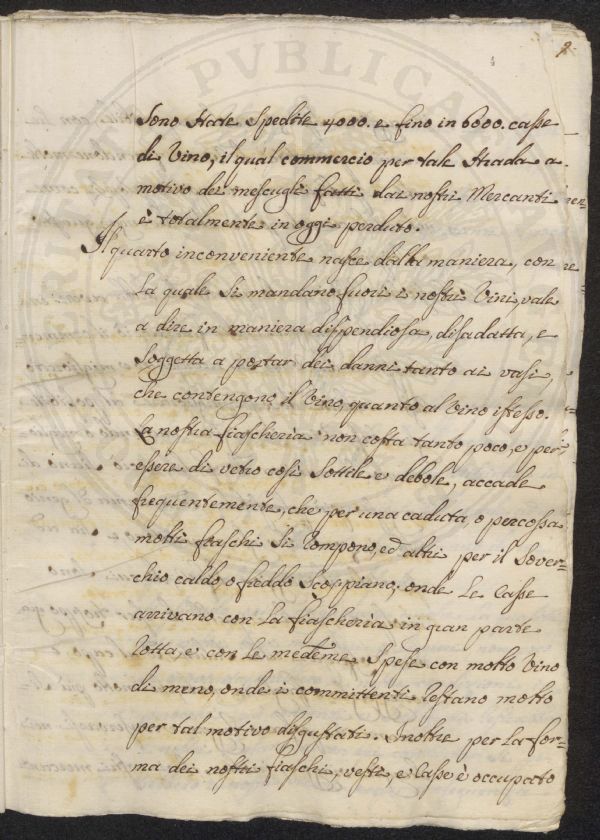 9
Sono state spedite 4000. e fino in 6000. casse
di Vino, il qual commercio per tale strada a
motivo dei mescugli fatti dai nostri Mercanti
è totalmente in oggi perduto.
Il quarto inconveniente nasce dalla maniera, con
la quale si mandano fuori i nostri Vini, vale
a dire in maniera dispendiosa, disadatta, e
soggetta a portar dei danni tanto ai vasi,
che contengono il Vino, quanto al Vino istesso.
La nostra fiascheria non costa tanto poco, e per
essere di vetro così sottile e debole, accade
frequentemente, che per una caduta, o percossa
molti fiaschi si rompono, ed altri per il sover=
chio caldo, o freddo scoppiano; onde le Casse
arrivano con la fiascheria in gran parte
rotta, e con le medeme spese con molto Vino
di meno, onde i committenti restano molto
per tal motivo disgustati. Inoltre per la for=
ma dei nostri fiaschi, vesti, e Casse è occupato